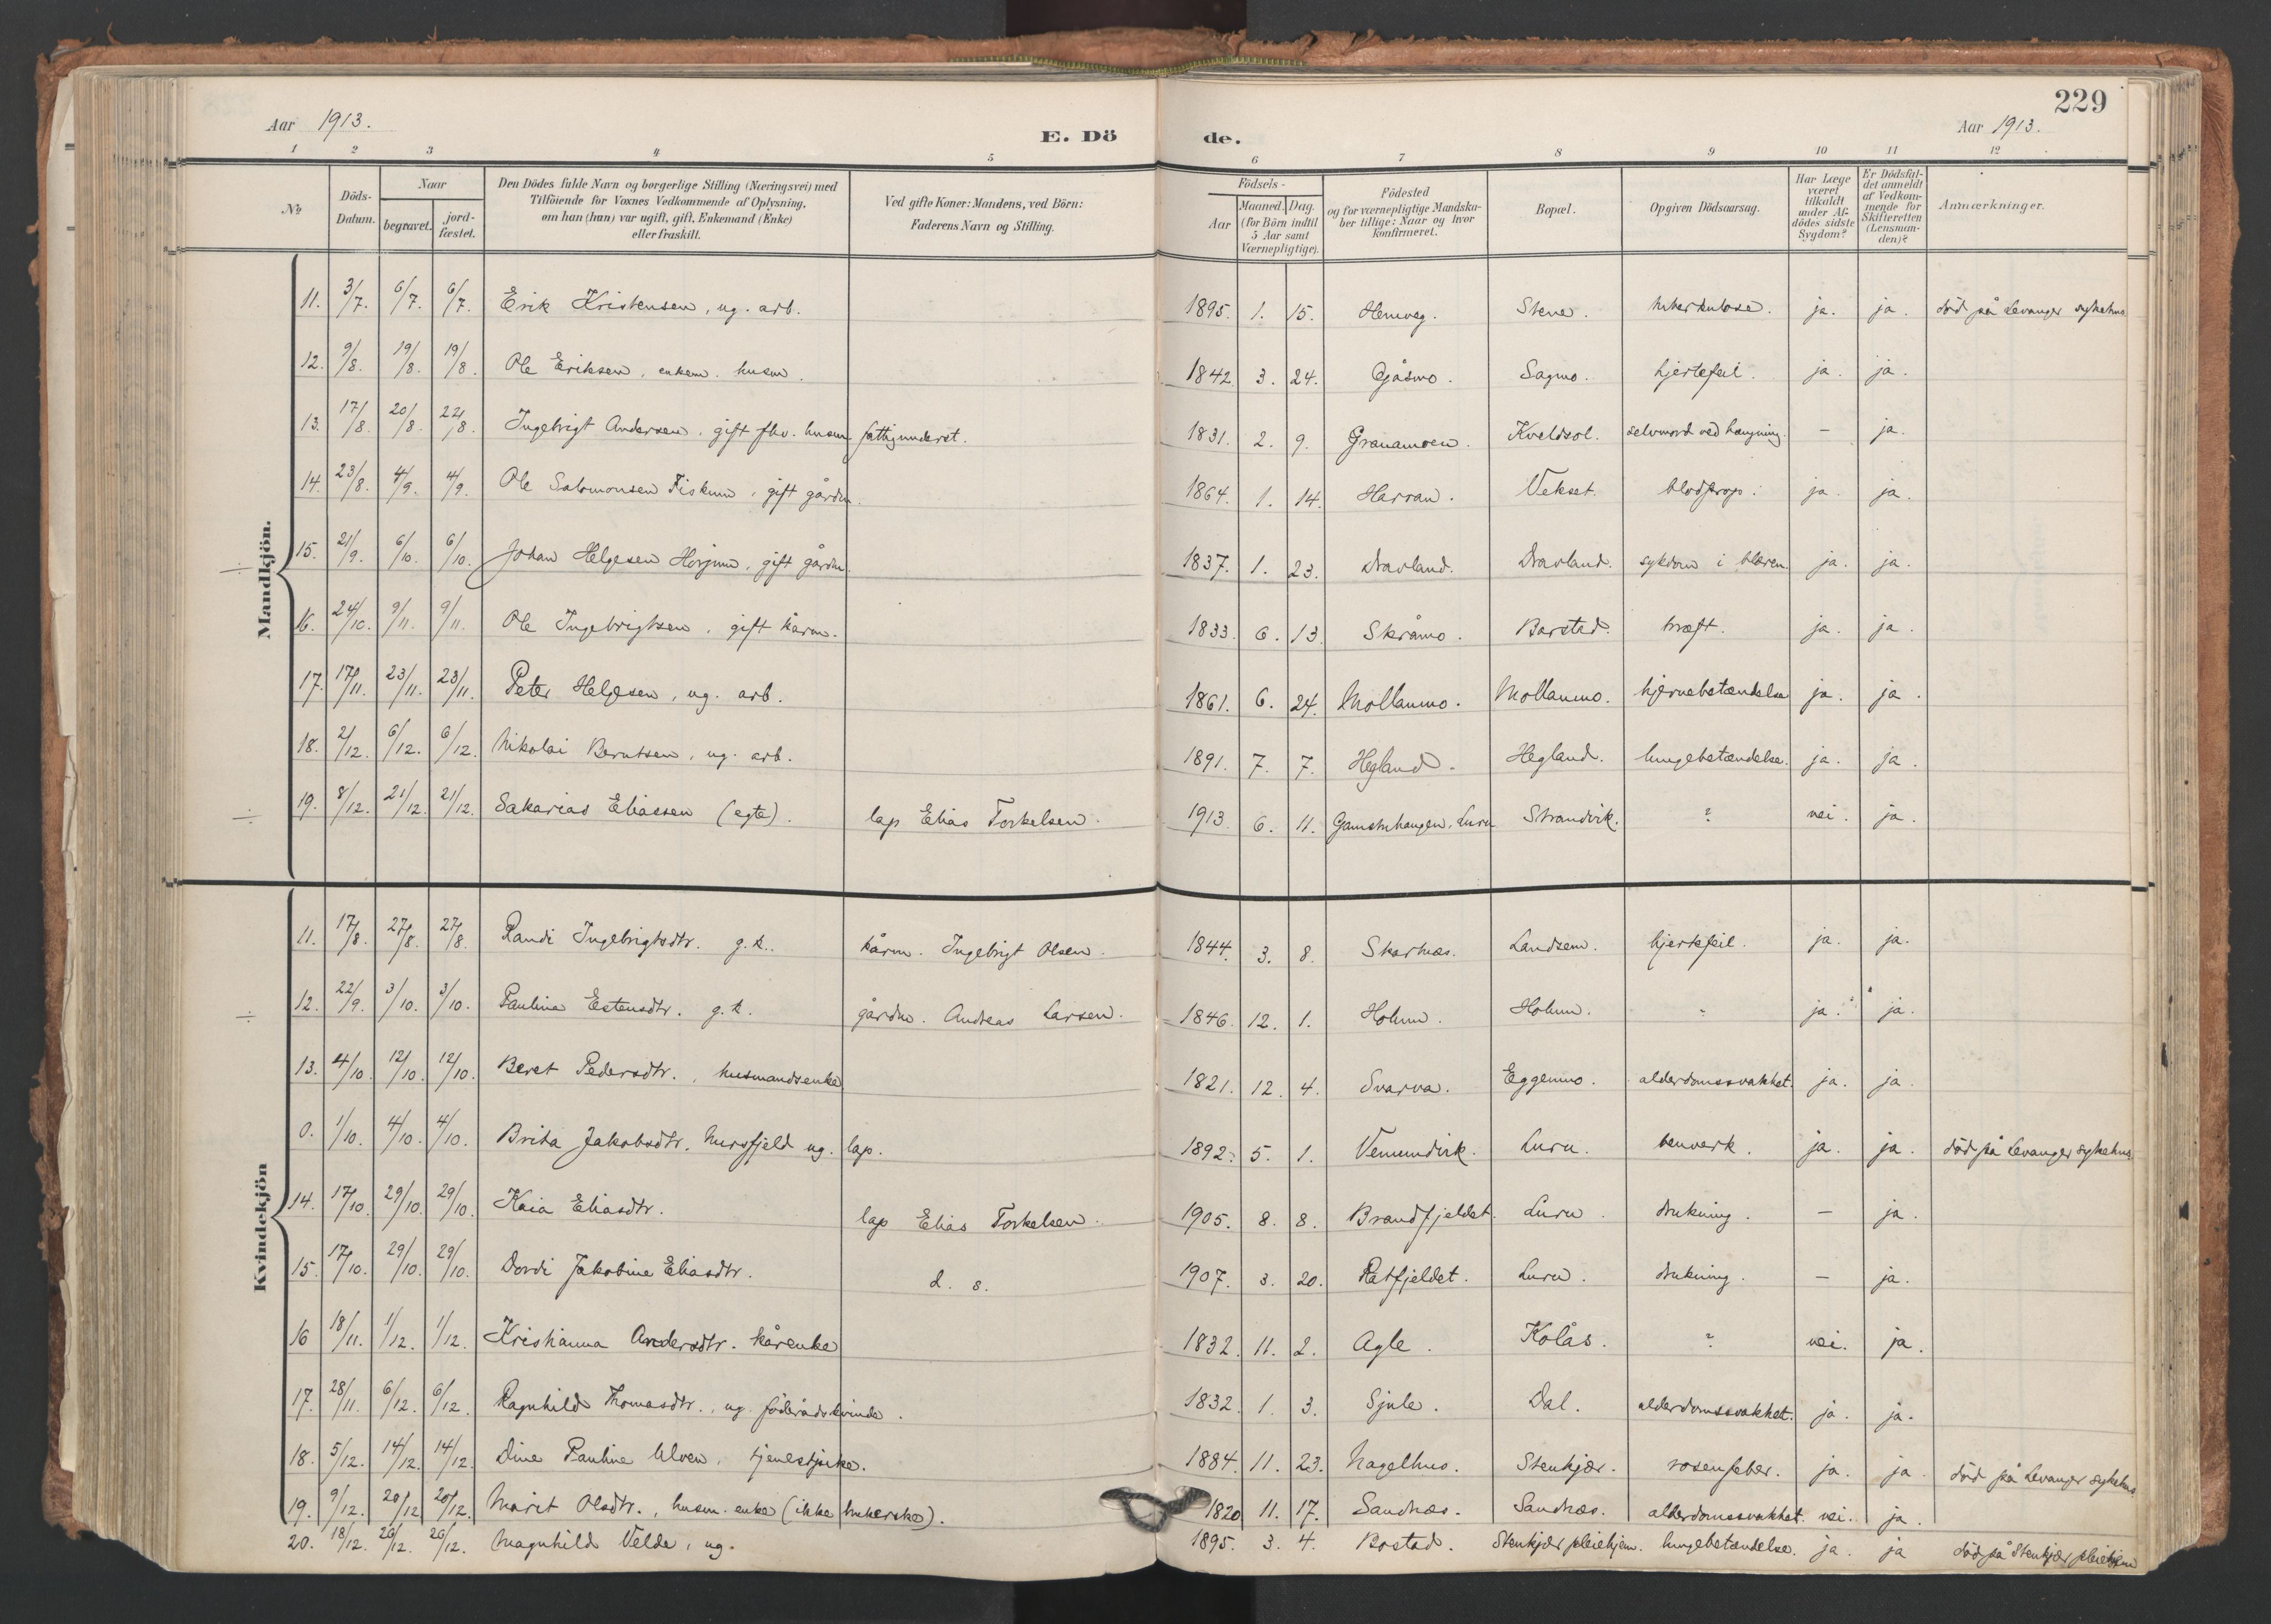 229
Aar 1913.
E. Dö de.
Aar 1913.
1 2 3 4 5 6 7 8 9 10 11 12
№ Döds-Datum. Naar begravet. jord-fæstet. Den Dödes fulde Navn og borgerlige Stilling (Næringsvei) med Tilföiende for Voxnes Vedkommende af Oplysning, om han (hun) var ugift, gift, Enkemand (Enke) eller fraskilt. Ved gifte Koner: Mandens, ved Börn: Faderens Navn og Stilling. Födsels- Aar Maaned. Dag. (for Börn indtil 5 Aar samt Værnepligtige). Födested og for værnepligtige Mandskaber tillige: Naar og hvor konfirmeret. Bopæl. Opgiven Dödsaarsag. Har Læge været tilkaldt under Afdödes sidste Sygdom? Er Dödsfaldet anmeldt af Vedkommende for Skifteretten (Lensmanden)? Anmærkninger.
Mandkjön.
11. 3/7. 6/7. 6/7. Erik Kristensen, ug. arb. 1895. 1. 15. Hemveg. Stene. tuberkulose. ja. ja. död på Levanger sykehus
12. 9/8. 19/8. 19/8. Ole Eriksen, enkem. husm. 1842. 3. 24. Gjåsmo. Sagmo. hjertefeil. ja. ja.
13. 17/8. 20/8. 22/8. Ingebrigt Andersen, gift fhv. husm. fattigunderst. 1831. 2. 9. Granamoen. Kveldsol. selvmord ved hængning. – ja.
14. 23/8. 4/9. 4/9. Ole Salomonsen Fiskum, gift gårdm. 1864. 1. 14. Harran. Vekset. blodprop. ja. ja.
÷ 15. 21/9. 6/10. 6/10. Johan Helgesen Horjum, gift gårdm. 1837. 1. 23. Dravland. Dravland. sykdom i blæren. ja. ja.
16. 24/10. 9/11. 9/11. Ole Ingebrigtsen, gift kårm. 1833. 6. 13. Skråmo. Barstad. kræft. ja. ja.
17. 17/11. 23/11. 23/11. Peter Helgesen, ug. arb. 1861. 6. 24. Mollanmo. Mollanmo. hjernebetændelse ja. ja.
18. 2/12. 6/12. 6/12. Nikolai Berntsen, ug. arb. 1891. 7. 7. Hegland. Hegland. lungebetændelse. ja. ja.
÷ 19. 8/12. 21/12. 21/12. Sakarias Eliassen (egte). lap Elias Torkelsen. 1913. 6. 11. Luru Strandvik. ? nei. ja.
Kvindekjön
11. 17/8. 27/8. 27/8. Randi Ingebrigtsdtr. g.k. kårm. Ingebrigt Olsen. 1844. 3. 8. Skarnæs. Landsem. hjertefeil. ja. ja.
÷ 12. 22/9. 3/10. 3/10. Pauline Estensdtr. g.k. gårdm. Andreas Larsen. 1846. 12. 1. Holum. Holum. ? ja. ja.
13. 4/10. 12/10. 12/10. Beret Pedersdtr., husmandsenke 1821. 12. 4. Svarva. Eggenmo. alderdomssvakhet. ja. ja.
0. 1/10. 4/10. 4/10. Brita Jakobsdtr. Mursfjeld ug. lap. 1892. 5. 1. Vemundvik. Luru. benverk. ja. ja. död på Levanger sykehus
14. 17/10. 29/10. 29/10. Kaia Eliasdtr. lap Elias Torkelsen. 1905. 8. 8. Brandfjeldet. Luru. drukning. – ja.
15. 17/10. 29/10. 29/10. Dordi Jakobine Eliasdtr. d. s. 1907. 3. 20. Ratfjeldet. Luru. drukning. – ja.
16 18/11. 1/12. 1/12. Kristianna Andersdtr. kårenke 1832. 11. 2. Agle. Kolås. ? nei. ja.
17. 28/11. 6/12. 6/12. Ragnhild Thomasdtr., ug. föderådskvinde. 1832. 1. 3. Sjule. Dal. alderdomssvakhet. ja. ja.
18. 5/12. 14/12. 14/12. Dine Pauline Ulven, tjenestpike. 1884. 11. 23. Nagelhus. Stenkjær. rosenfeber. ja. ja. död på Levanger sykehus
19. 9/12. 20/12 20/12. Marit Olsdtr., husm. enke (ikke 1820 11. 17. Sandnæs. Sandnæs. alderdomssvakhet. nei. ja.
20. 18/12. 26/12. 26/12. Magnhild Velde, ug. 1895. 3. 4. Bostad. Stenkjær pleiehjem. lungebetændelse. ja. ja död på Stenkjær pleiehjem